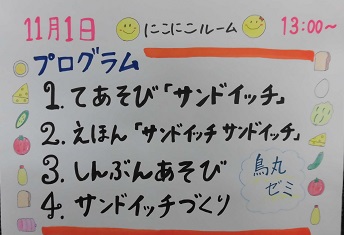 11月1日 にこにこルーム 13:00～
プログラム
1. てあそび「サンドイッチ」
2. えほん「サンドイッチ サンドイッチ」
3. しんぶんあそび
4. サンドイッチづくり
鳥丸
ゼミ